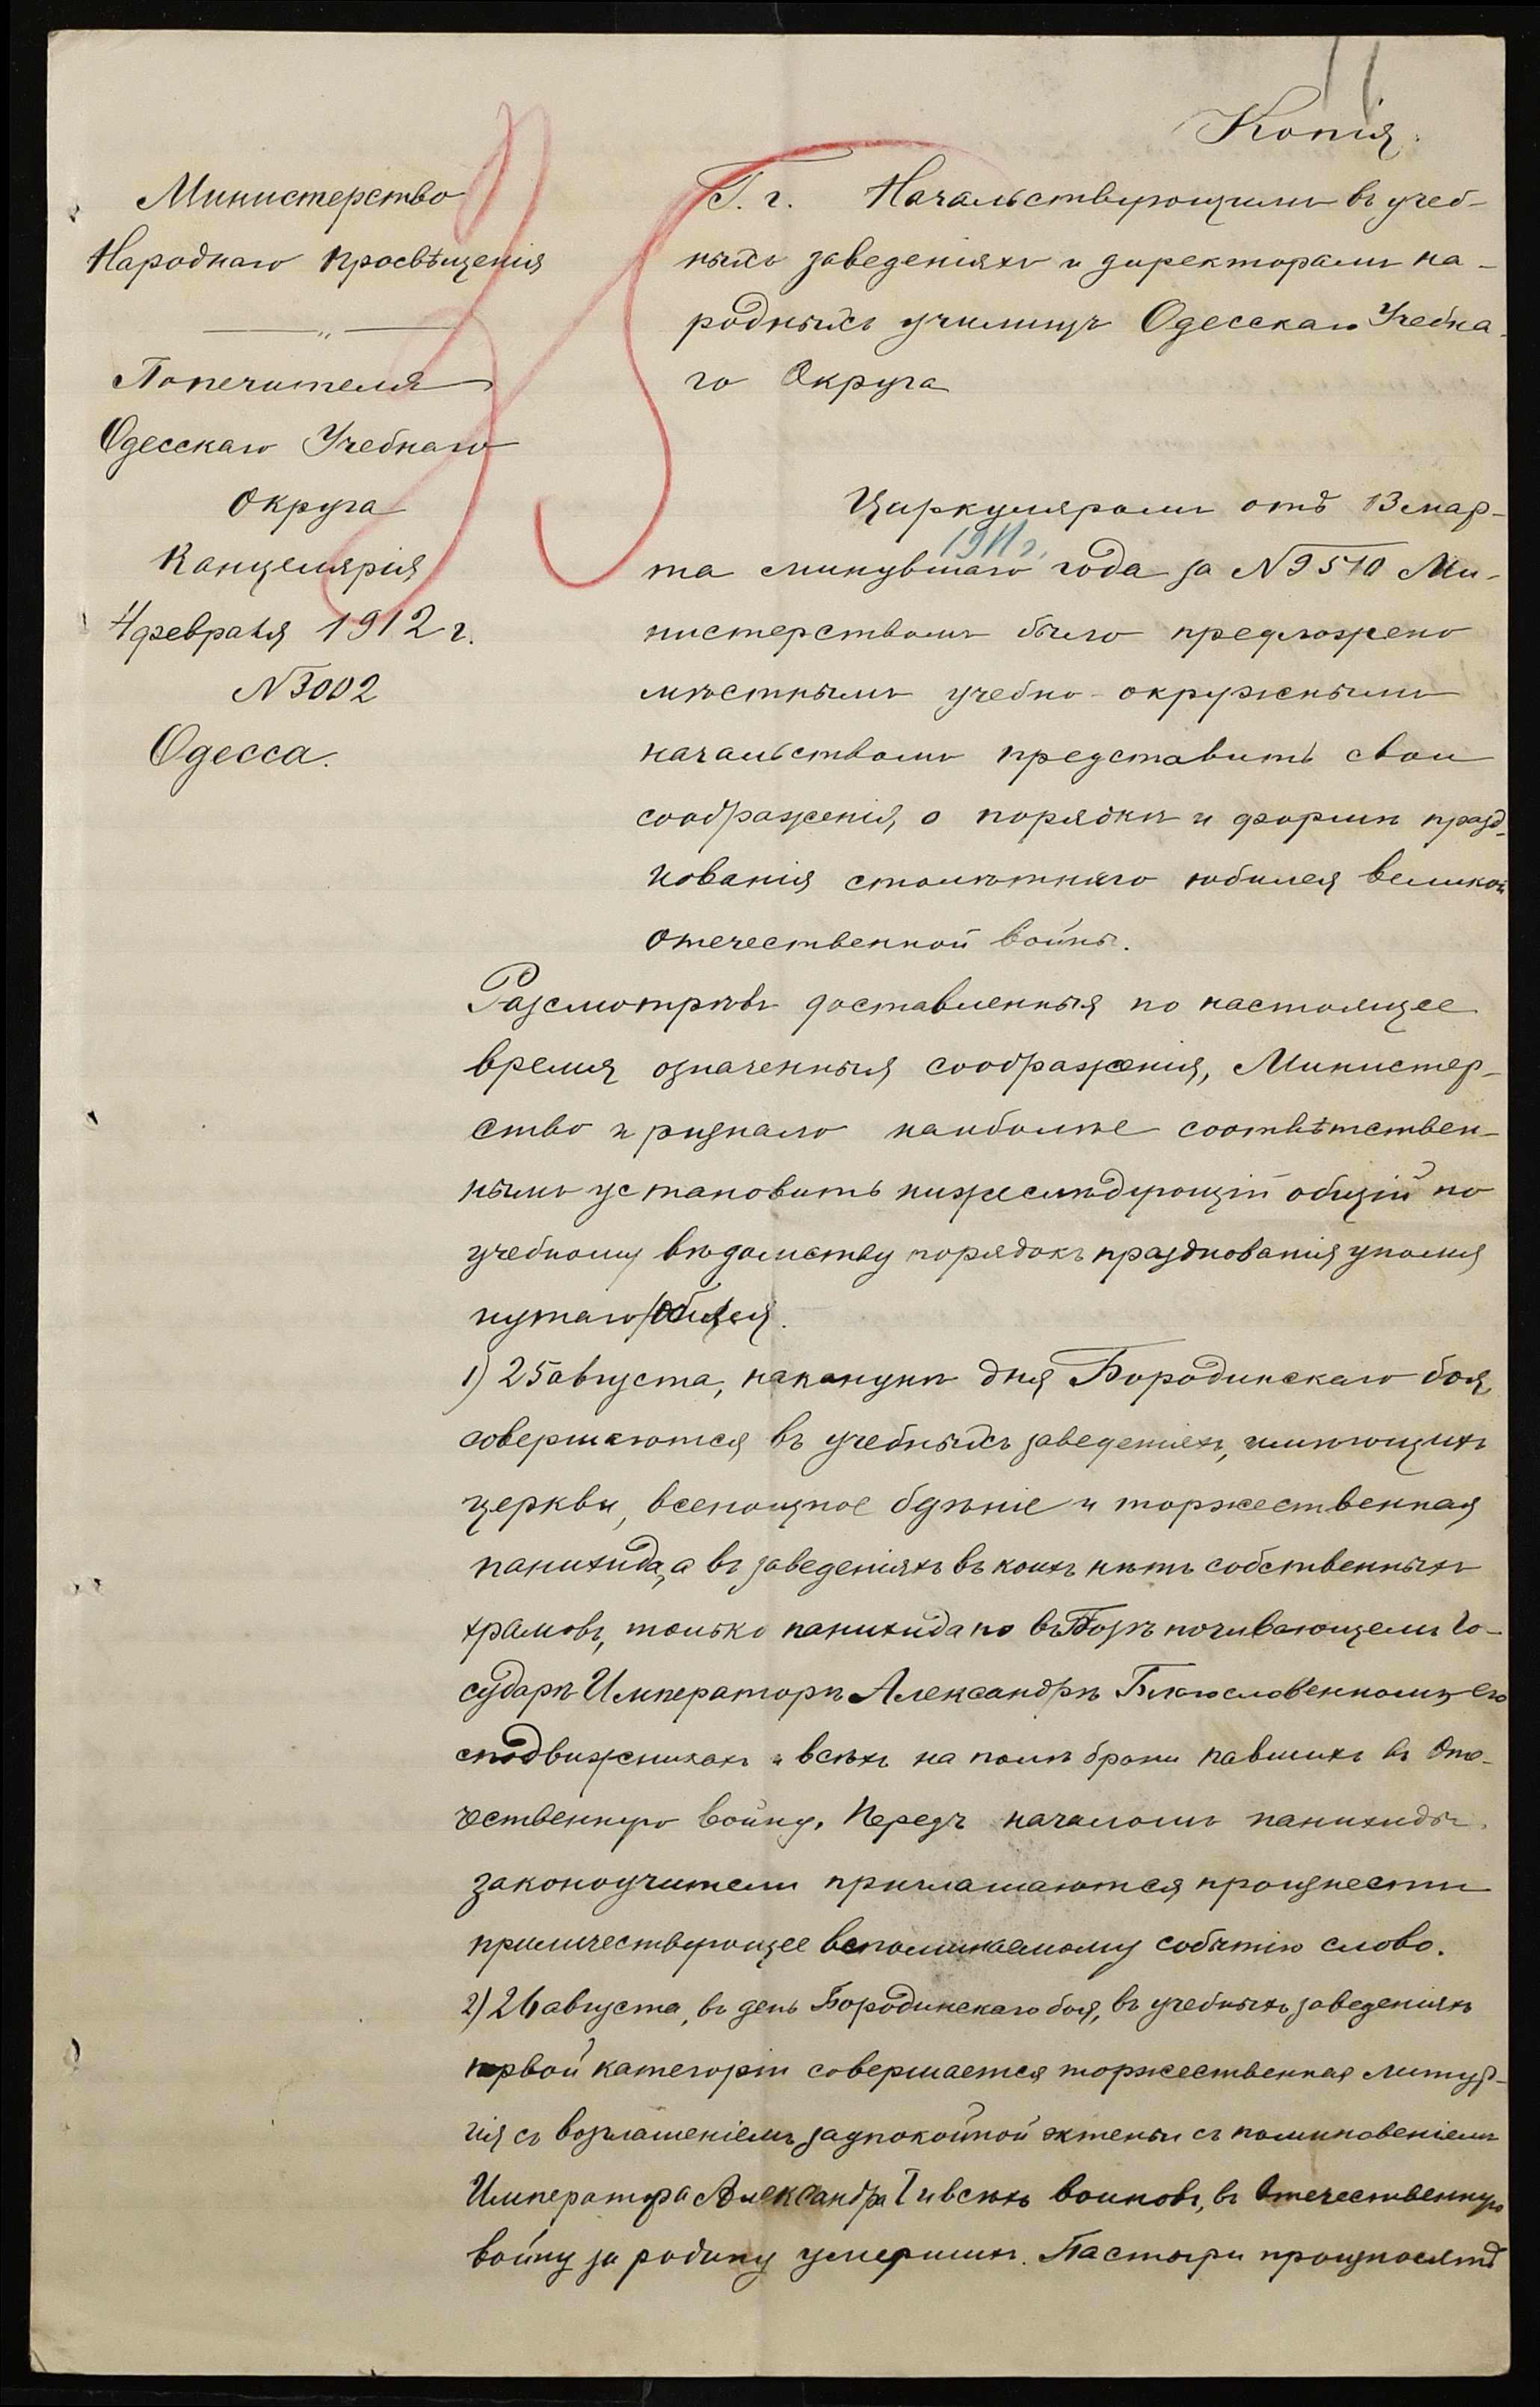 Копія.
Министерство
Народнаго Просвѣщенія
Попечителя
Одесскаго Учебнаго
Округа
Канцелярія
4 февраля 1912 г.
№ 3002
Одесса.
Г. г. Начальствующимъ въ учеб-
ныхъ заведеніяхъ и директорамъ на-
родныхъ училищъ Одесскаго Учебна-
го Округа
Циркуляромъ отъ 13 мар-
1911 г.
та минувшаго года за № 9510 Ми-
нистерствомъ было предложено
мѣстнымъ учебно-окружнымъ
начальствамъ представить свои
соображенія, о порядкѣ и формѣ празд-
нованія столѣтняго юбилея великой
отечественной войны.
Разсмотрѣвъ доставленныя по настоящее
время означенныя соображенія, Министер-
ство признало наиболѣе соотвѣтствен-
нымъ установить нижеслѣдующій общій по
учебному вѣдомству порядокъ празднованія упомя
нутаго юбилея.
1) 25 августа, наканунѣ дня Бородинскаго боя,
совершаются въ учебныхъ заведеніяхъ, имѣющихъ
церкви, всенощное бдѣніе и торжественная
панихида, а въ заведеніяхъ въ коихъ нѣтъ собственныхъ
храмовъ, только панихида по въ Бозѣ почивающемъ Го-
сударѣ Императорѣ Александрѣ Благословенномъ, его
сподвижникахъ и всѣхъ на полѣ брани павшихъ въ Оте-
чественную войну. Передъ началомъ панихиды
законоучители приглашаются произнести
приличествующее вспоминаемому событію слово.
2) 26 августа, въ день Бородинскаго боя, въ учебныхъ заведеніяхъ
первой категоріи совершается торжественная литур-
гія съ возглашеніемъ заупокойной эктеньи съ поминовеніемъ
Императора Александра I и всѣхъ воиновъ, въ Отечественную
войну за родину умершихъ. Пастыри произносятъ